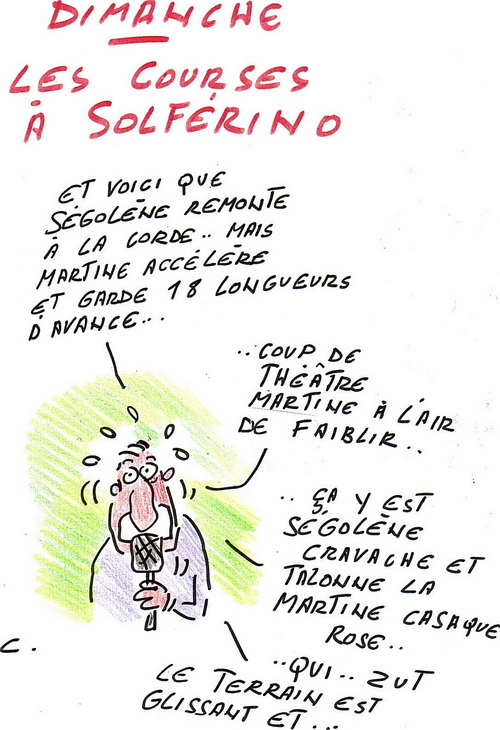 DIMANCHE
LES COURSES
À SOLFÉRINO
ET VOICI QUE
SÉGOLÈNE REMONTE
À LA CORDE.. MAIS
MARTINE ACCÉLÈRE
ET GARDE 18 LONGUEURS
D'AVANCE...
..COUP DE
THÉÂTRE
MARTINE À L'AIR
DE FAIBLIR..
.. ÇA Y EST
SÉGOLÈNE
CRAVACHE ET
TALONNE LA
MARTINE CASAQUE
ROSE..
..QUI.. ZUT
LE TERRAIN EST
GLISSANT ET...
C.